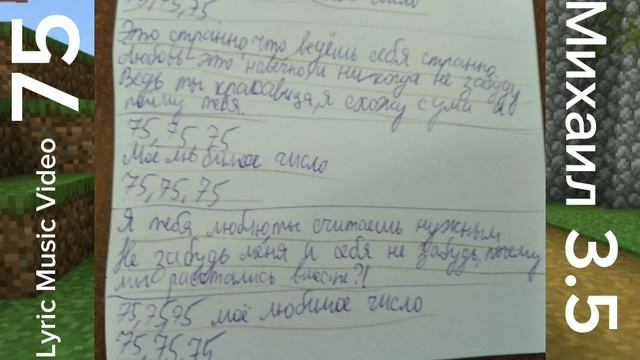 75
Lyric Music Video
75,75,75 число
Это странно что ведёшь себя странно
Любовь это навечно и никогда не забуду
Ведь ты красавица, я схожу с ума я
помню тебя.
75, 75, 75
Моё любимое число
75, 75, 75
Я тебя люблю, ты считаешь нужным
Не забудь меня и себя не забудь, почему
мы расстались вместе?!
75,75,75 моё любимое число
75,75,75
Михаил 3.5